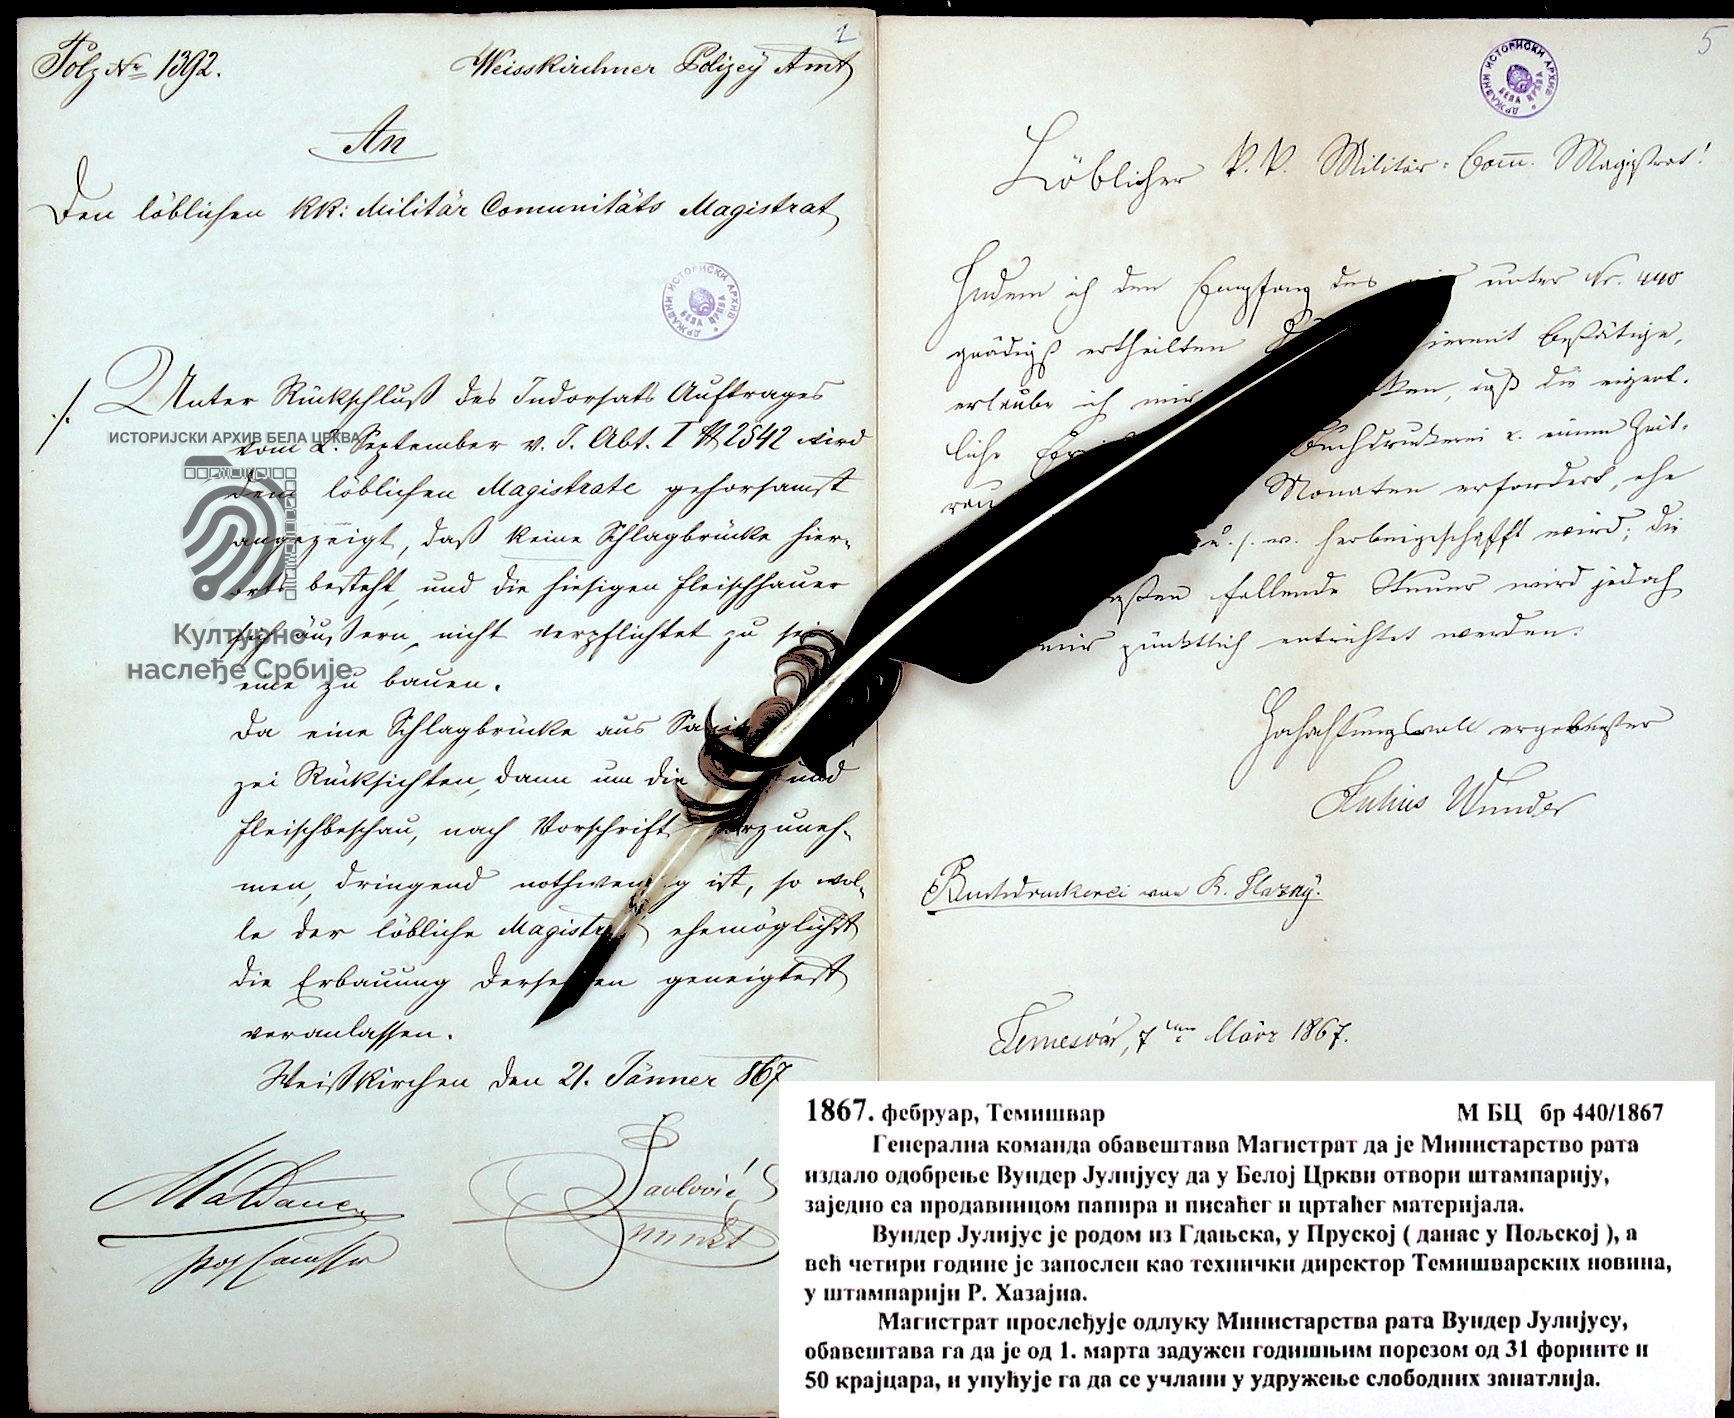 1
Polz Nr 1392.
Weisskirchner Polizey Amt
An
Den löblichen KK: Militär Comunitäts Magistrat
ДРЖАВНИ ИСТОРИСКИ АРХИВ
БЕЛА ЦРКВА
Unter Rückschluß des Indorsats Auftrages
vom 2. September v. J. Abt. I № 2542 wird
dem löblichen Magistrate gehorsamst
angezeigt, daß keine Schlagbrücke hier-
orts besteht, und die hiesigen Fleischhauer
sich äußern, nicht verpflichtet zu sein
eine zu bauen.
Da eine Schlagbrücke aus
zei Rücksichten, dann um die und
Fleischbeschau, nach Vorschrift vorzuneh-
men, dringend nothwendig ist, so wol-
le der löbliche Magistrat ehemöglichst
die Erbauung derselben geneigtest
veranlassen.
Weißkirchen den 21. Jänner 867
Pavlović
ИСТОРИЈСКИ АРХИВ БЕЛА ЦРКВА
Културно
наслеђе Србије
5
ДРЖАВНИ ИСТОРИСКИ АРХИВ
БЕЛА ЦРКВА
Löblicher k. k. Militär-Comm. Magistrat!
Indem ich den Empfang des unter Nr. 440
gnädigst ertheilten hiermit bestätige,
erlaube ich mir daß die eigent-
liche Buchdruckerei e. einen Zeit-
raum Monaten erfordert, ehe
u. s. w. herbeigeschafft wird; die
fallende Steuer wird jedoch
mir pünktlich entrichtet werden.
Hochachtungsvoll ergebenster
Julius Wunder
Buchdruckerei von R. Hazay.
Temesvár, 7ten März 1867.
1867. фебруар, Темишвар М БЦ бр 440/1867
Генерална команда обавештава Магистрат да је Министарство рата
издало одобрење Вундер Јулијусу да у Белој Цркви отвори штампарију,
заједно са продавницом папира и писаћег и цртаћег материјала.
Вундер Јулијус је родом из Гдањска, у Пруској ( данас у Пољској ), а
већ четири године је запослен као технички директор Темишварских новина,
у штампарији Р. Хазајна.
Магистрат прослеђује одлуку Министарства рата Вундер Јулијусу,
обавештава га да је од 1. марта задужен годишњим порезом од 31 форинте и
50 крајцара, и упућује га да се учлани у удружење слободних занатлија.